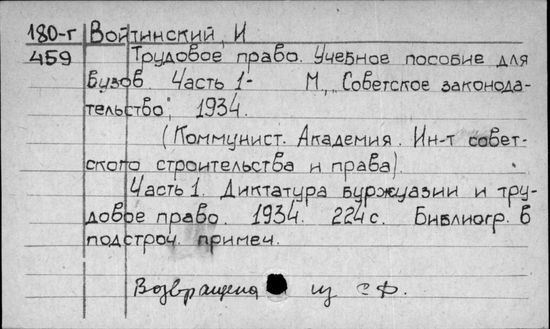 180-г Войтинский, И
459 Трудовое право. Учебное пособие для
вузов. Часть 1- М., "Советское законода-
тельство", 1934.
(Коммунист. Академия. Ин-т совет-
ского строительства и права).
Часть 1. Диктатура буржуазии и тру-
довое право. 1934. 224 с. Библиогр. в
подстроч. примеч.
Возвращена из СФ.